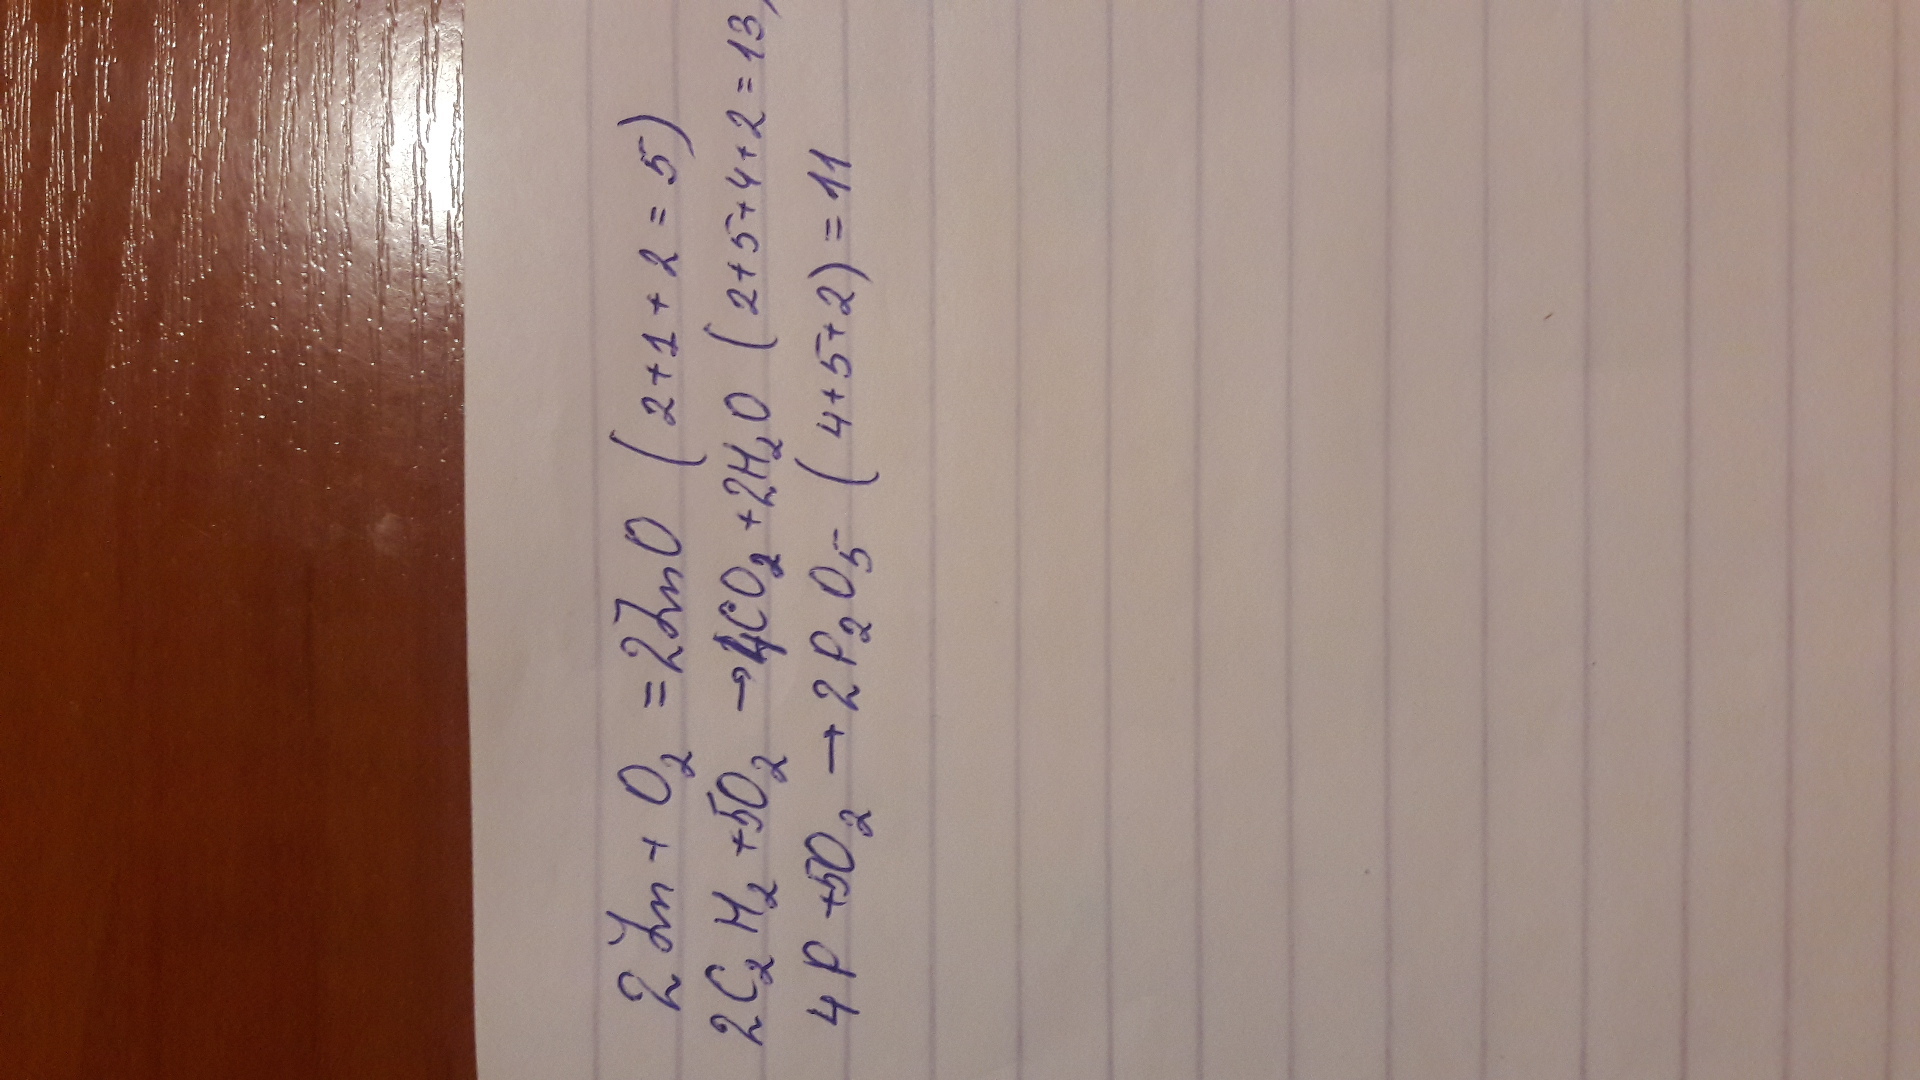 2Zn + O₂ = 2ZnO (2+1+2=5)
2C₂H₂ + 5O₂ → 4CO₂ + 2H₂O (2+5+4+2=13)
4P + 5O₂ → 2P₂O₅ (4+5+2)=11